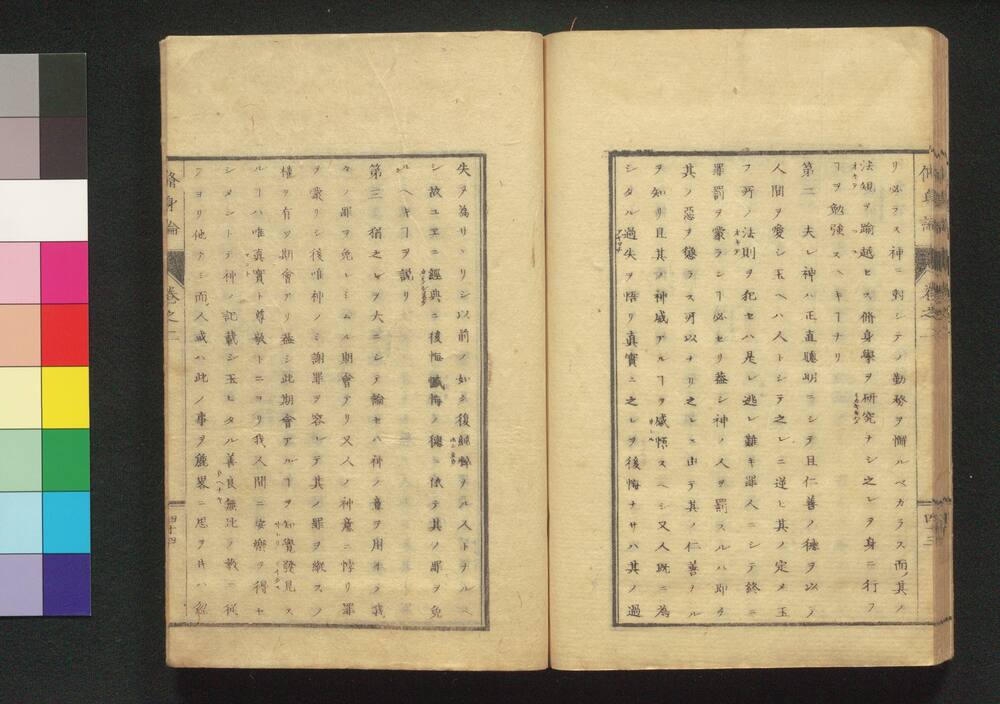 リ必ラス神ニ對シテノ勤務ヲ懈ルベカラス而ノ其ノ
法規ヲ踰越セス脩身學ヲ研究ナシ之レヲ身ニ行フ
ヿヲ勉強スヘキヿナリ
第二 夫レ神ハ正直聰明ニシテ且仁善ノ德ヲ以テ
人間ヲ愛シ玉ヘハ人トシテ之レニ逆ヒ其ノ定メ玉
フ所ノ法則ヲ犯セハ是レ逃レ難キ罪人ニシテ終ニ
罪罰ヲ蒙ランヿ必セリ蓋シ神ノ人ヲ罰スルハ即チ
其ノ惡ヲ懲ラス所以ナリ之レニ由テ其ノ仁善ナル
ヲ知リ且其ノ神威アルヿヲ感悟スヘシ又人既ニ為
シタル過失ヲ悟リ真實ニ之レヲ後悔ナサハ其ノ過
脩身論 卷之一 四十三
失ヲ為サヽリシ以前ノ如シ後
シ故ユエニ經典ニ後悔懺悔ノ德ニ依テ其ノ罪ヲ免
ルヘキヿヲ説リ
第三 猶之レヲ大ニシテ論セハ神ノ意ヲ用ヰテ我
々ノ罪ヲ免レシムル期會アリ又人ノ神意ニ悖リ罪
ヲ蒙リシ後唯神ノミ謝罪ヲ容レテ其ノ罪ヲ縱スノ
權ヲ有ツ期會アリ蓋シ此期會アルヿヲ知實發見ス
ルヿハ唯真實ト尊敬トニヨリ我人間ニ安樂ヲ得セ
シメントテ神ノ記載シ玉ヒタル善良無比ラ教ニ從
フヨリ他ナシ而人或ハ此ノ事ヲ麁畧ニ思ヲ其ハ
脩身論 卷之一 四十四